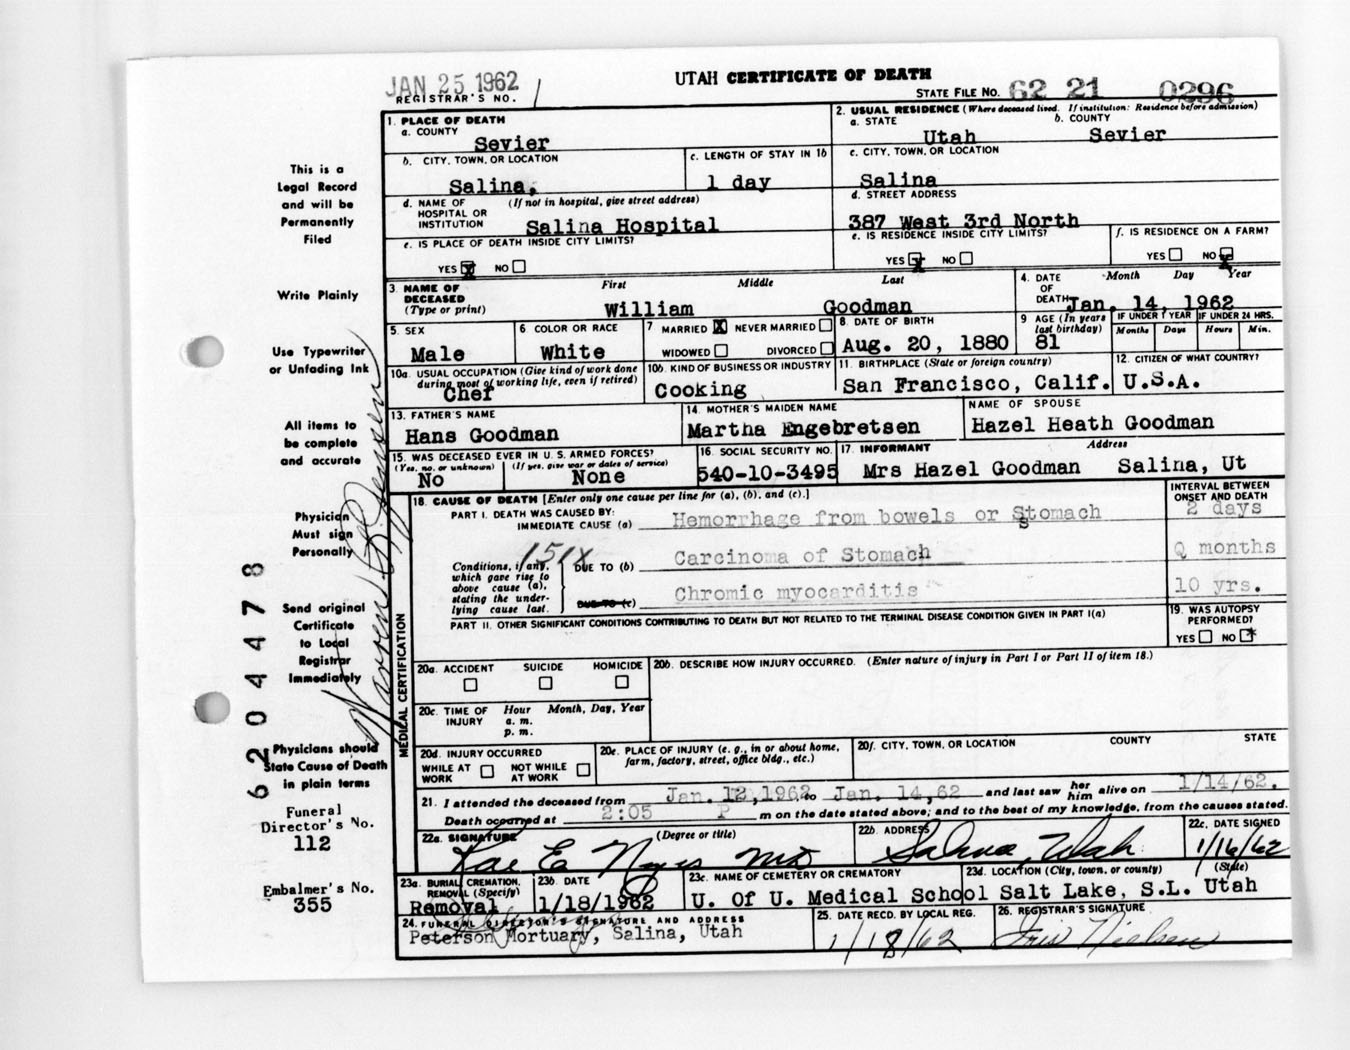 JAN 25 1962
UTAH CERTIFICATE OF DEATH
REGISTRAR'S NO. 1
STATE FILE NO. 62 21 0296
1. PLACE OF DEATH
a. COUNTY
Sevier
2. USUAL RESIDENCE (Where deceased lived. If institution: Residence before admission)
a. STATE
Utah
b. COUNTY
Sevier
b. CITY, TOWN, OR LOCATION
Salina,
c. LENGTH OF STAY IN 1b
1 day
c. CITY, TOWN, OR LOCATION
Salina
d. NAME OF HOSPITAL OR INSTITUTION
(If not in hospital, give street address)
Salina Hospital
d. STREET ADDRESS
387 West 3rd North
e. IS PLACE OF DEATH INSIDE CITY LIMITS?
YES X NO
e. IS RESIDENCE INSIDE CITY LIMITS?
YES X NO
f. IS RESIDENCE ON A FARM?
YES NO X
3. NAME OF DECEASED (Type or print)
First Middle Last
William Goodman
4. DATE OF DEATH
Month Day Year
Jan. 14, 1962
5. SEX
Male
6 COLOR OR RACE
White
7 MARRIED X NEVER MARRIED
WIDOWED DIVORCED
8. DATE OF BIRTH
Aug. 20, 1880
9 AGE (In years last birthday)
81
IF UNDER 1 YEAR
Months Days
IF UNDER 24 HRS.
Hours Min.
10a. USUAL OCCUPATION (Give kind of work done during most of working life, even if retired)
Chef
10b. KIND OF BUSINESS OR INDUSTRY
Cooking
11. BIRTHPLACE (State or foreign country)
San Francisco, Calif.
12. CITIZEN OF WHAT COUNTRY?
U.S.A.
13. FATHER'S NAME
Hans Goodman
14. MOTHER'S MAIDEN NAME
Martha Engebretsen
NAME OF SPOUSE
Hazel Heath Goodman
15. WAS DECEASED EVER IN U. S. ARMED FORCES?
(Yes, no, or unknown) (If yes, give war or dates of service)
No None
16. SOCIAL SECURITY NO.
540-10-3495
17. INFORMANT Address
Mrs Hazel Goodman Salina, Ut
MEDICAL CERTIFICATION
18. CAUSE OF DEATH [Enter only one cause per line for (a), (b), and (c).]
INTERVAL BETWEEN ONSET AND DEATH
PART I. DEATH WAS CAUSED BY:
IMMEDIATE CAUSE (a) Hemorrhage from bowels or Stomach 2 days
151X
Conditions, if any, which gave rise to above cause (a), stating the underlying cause last.
DUE TO (b) Carcinoma of Stomach Q months
DUE TO (c) Chromic myocarditis 10 yrs.
PART II. OTHER SIGNIFICANT CONDITIONS CONTRIBUTING TO DEATH BUT NOT RELATED TO THE TERMINAL DISEASE CONDITION GIVEN IN PART I(a)
19. WAS AUTOPSY PERFORMED?
YES NO X
20a. ACCIDENT SUICIDE HOMICIDE
20b. DESCRIBE HOW INJURY OCCURRED. (Enter nature of injury in Part I or Part II of item 18.)
20c. TIME OF INJURY
Hour Month, Day, Year
a. m.
p. m.
20d. INJURY OCCURRED
WHILE AT WORK NOT WHILE AT WORK
20e. PLACE OF INJURY (e. g., in or about home, farm, factory, street, office bldg., etc.)
20f. CITY, TOWN, OR LOCATION COUNTY STATE
21. I attended the deceased from Jan. 12, 1962 to Jan. 14, 62 and last saw her him alive on 1/14/62.
Death occurred at 2:05 P m on the date stated above; and to the best of my knowledge, from the causes stated.
22a. SIGNATURE (Degree or title)
Rae E. Noyes MD
22b. ADDRESS
Salina, Utah
22c. DATE SIGNED
1/16/62
23a. BURIAL, CREMATION, REMOVAL (Specify)
Removal
23b. DATE
1/18/1962
23c. NAME OF CEMETERY OR CREMATORY
U. Of U. Medical School
23d. LOCATION (City, town, or county) (State)
Salt Lake, S.L. Utah
24. FUNERAL DIRECTOR'S SIGNATURE AND ADDRESS
Peterson Mortuary, Salina, Utah
25. DATE RECD. BY LOCAL REG.
1/18/62
26. REGISTRAR'S SIGNATURE
Iris Nielsen
This is a
Legal Record
and will be
Permanently
Filed
Write Plainly
Use Typewriter
or Unfading Ink
All items to
be complete
and accurate
Physician
Must sign
Personally
Send original
Certificate
to Local
Registrar
Immediately
Physicians should
State Cause of Death
in plain terms
Funeral
Director's No.
112
Embalmer's No.
355
6204478